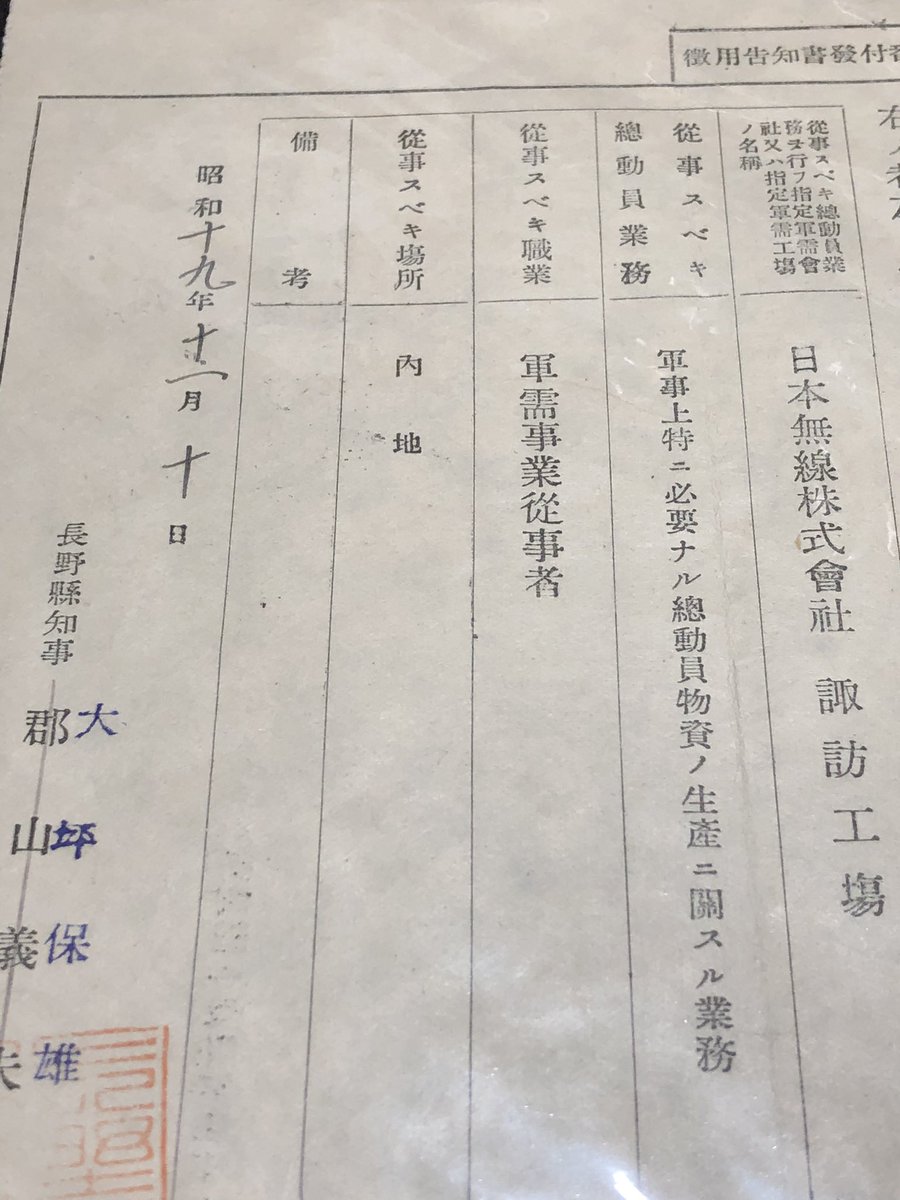 徵用告知書發付
從事スベキ總動員業
務ヲ行フ指定軍需會
社又ハ指定軍需工場
ノ名稱
日本無線株式會社 諏訪工場
從事スベキ
總動員業務
軍事上特ニ必要ナル總動員物資ノ生產ニ關スル業務
從事スベキ職業
軍需事業從事者
從事スベキ場所
內地
備考
昭和十九年十一月十日
長野縣知事
大坪保雄
郡山義夫